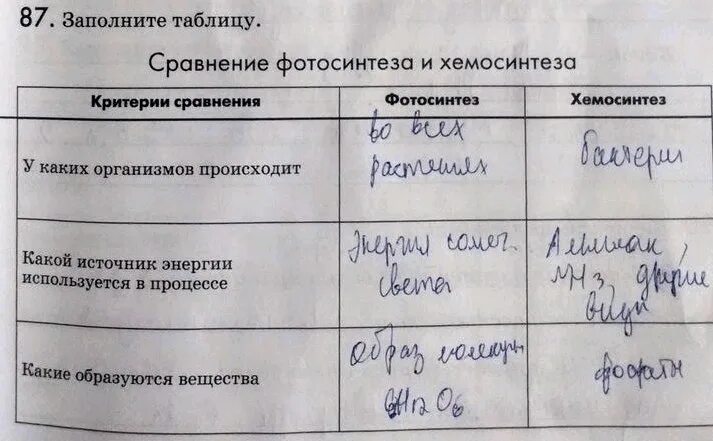 87. Заполните таблицу.
Сравнение фотосинтеза и хемосинтеза
Критерии сравнения Фотосинтез Хемосинтез
У каких организмов происходит
во всех
растениях
бактерии
Какой источник энергии
используется в процессе
Энергия солнеч.
света
Аммиак,
NH3, другие
виды
Какие образуются вещества
Образ молекулы
6H12O6
фосфаты